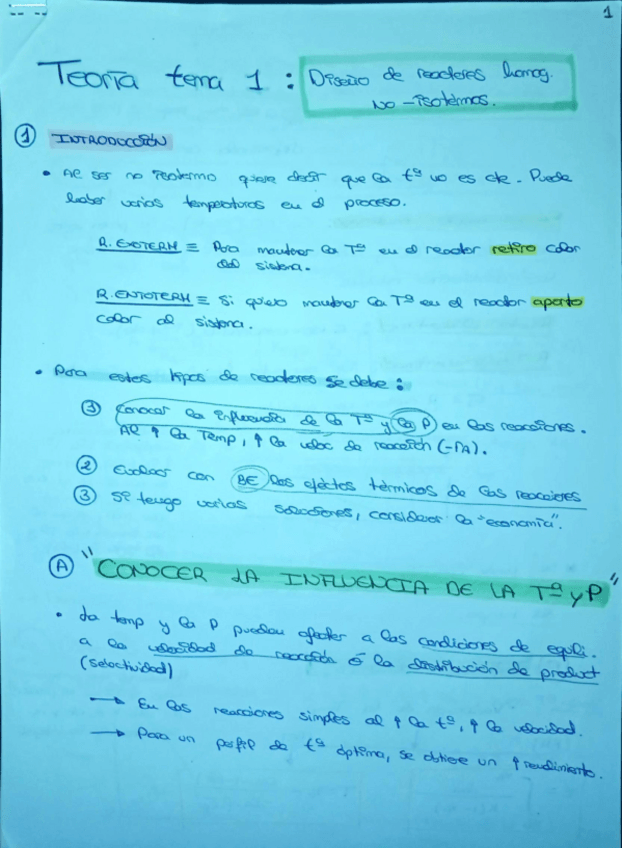 1
Teoría tema 1 : Diseño de reactores homog.
no-isotermos.
① INTRODUCCIÓN
• Al ser no isotermo quiere decir que la tª no es cte. Puede
haber varias temperaturas en el proceso.
R. EXOTERM ≡ Para mantener la Tª en el reactor retiro calor
del sistema.
R. ENDOTERM ≡ Si quiero mantener la Tª en el reactor aporto
calor al sistema.
• Para estos tipos de reactores se debe :
① Conocer la influencia de la Tª y la P en las reacciones.
Al ↑ la Temp, ↑ la veloc de reacción (-rA).
② Evaluar con BE los efectos térmicos de las reacciones
③ Si tengo varias soluciones, considerar la "economía".
Ⓐ "CONOCER LA INFLUENCIA DE LA Tª y P"
• La temp y la P pueden afectar a las condiciones de equili.
a la velocidad de reacción ó la distribución de product
(selectividad)
→ En las reacciones simples al ↑ la tª, ↑ la velocidad.
→ Para un perfil de tª óptima, se obtiene un ↑ rendimiento.